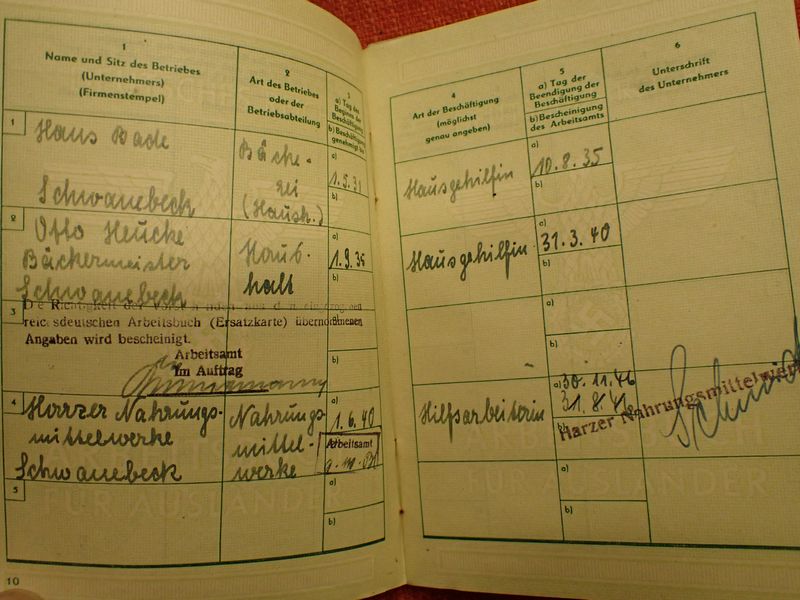 1
Name und Sitz des Betriebes
(Unternehmers)
(Firmenstempel)
2
Art des Betriebes
oder der
Betriebsabteilung
3
a) Tag des
Beginns der
Beschäftigung
b) Beschäftigung
genehmigt bis
1
Hans Bade
Schwanebeck
Bäcke-
rei
(Haush.)
a)
1.5.31
b)
2
Otto Heucke
Bäckermeister
Schwanebeck
Haus-
halt
a)
1.9.35
b)
3
Die Richtigkeit der
reichsdeutschen Arbeitsbuch (Ersatzkarte) übernommenen
Angaben wird bescheinigt.
Arbeitsamt
Im Auftrag
a)
b)
4
Harzer Nahrungs-
mittelwerke
Schwanebeck
Nahrungs-
mittel-
werke
a)
1.6.40
Arbeitsamt
5
a)
b)
FÜR AUSLÄNDER
10
4
Art der Beschäftigung
(möglichst
genau angeben)
5
a) Tag der
Beendigung der
Beschäftigung
b) Bescheinigung
des Arbeitsamts
6
Unterschrift
des Unternehmers
Hausgehilfin
a)
10.8.35
b)
Hausgehilfin
a)
31.3.40
b)
a)
b)
Hilfsarbeiterin
a)
30.11.46
31.8.41
b)
Harzer Nahrungsmittelwerke
a)
b)
FÜR AUSLÄNDER